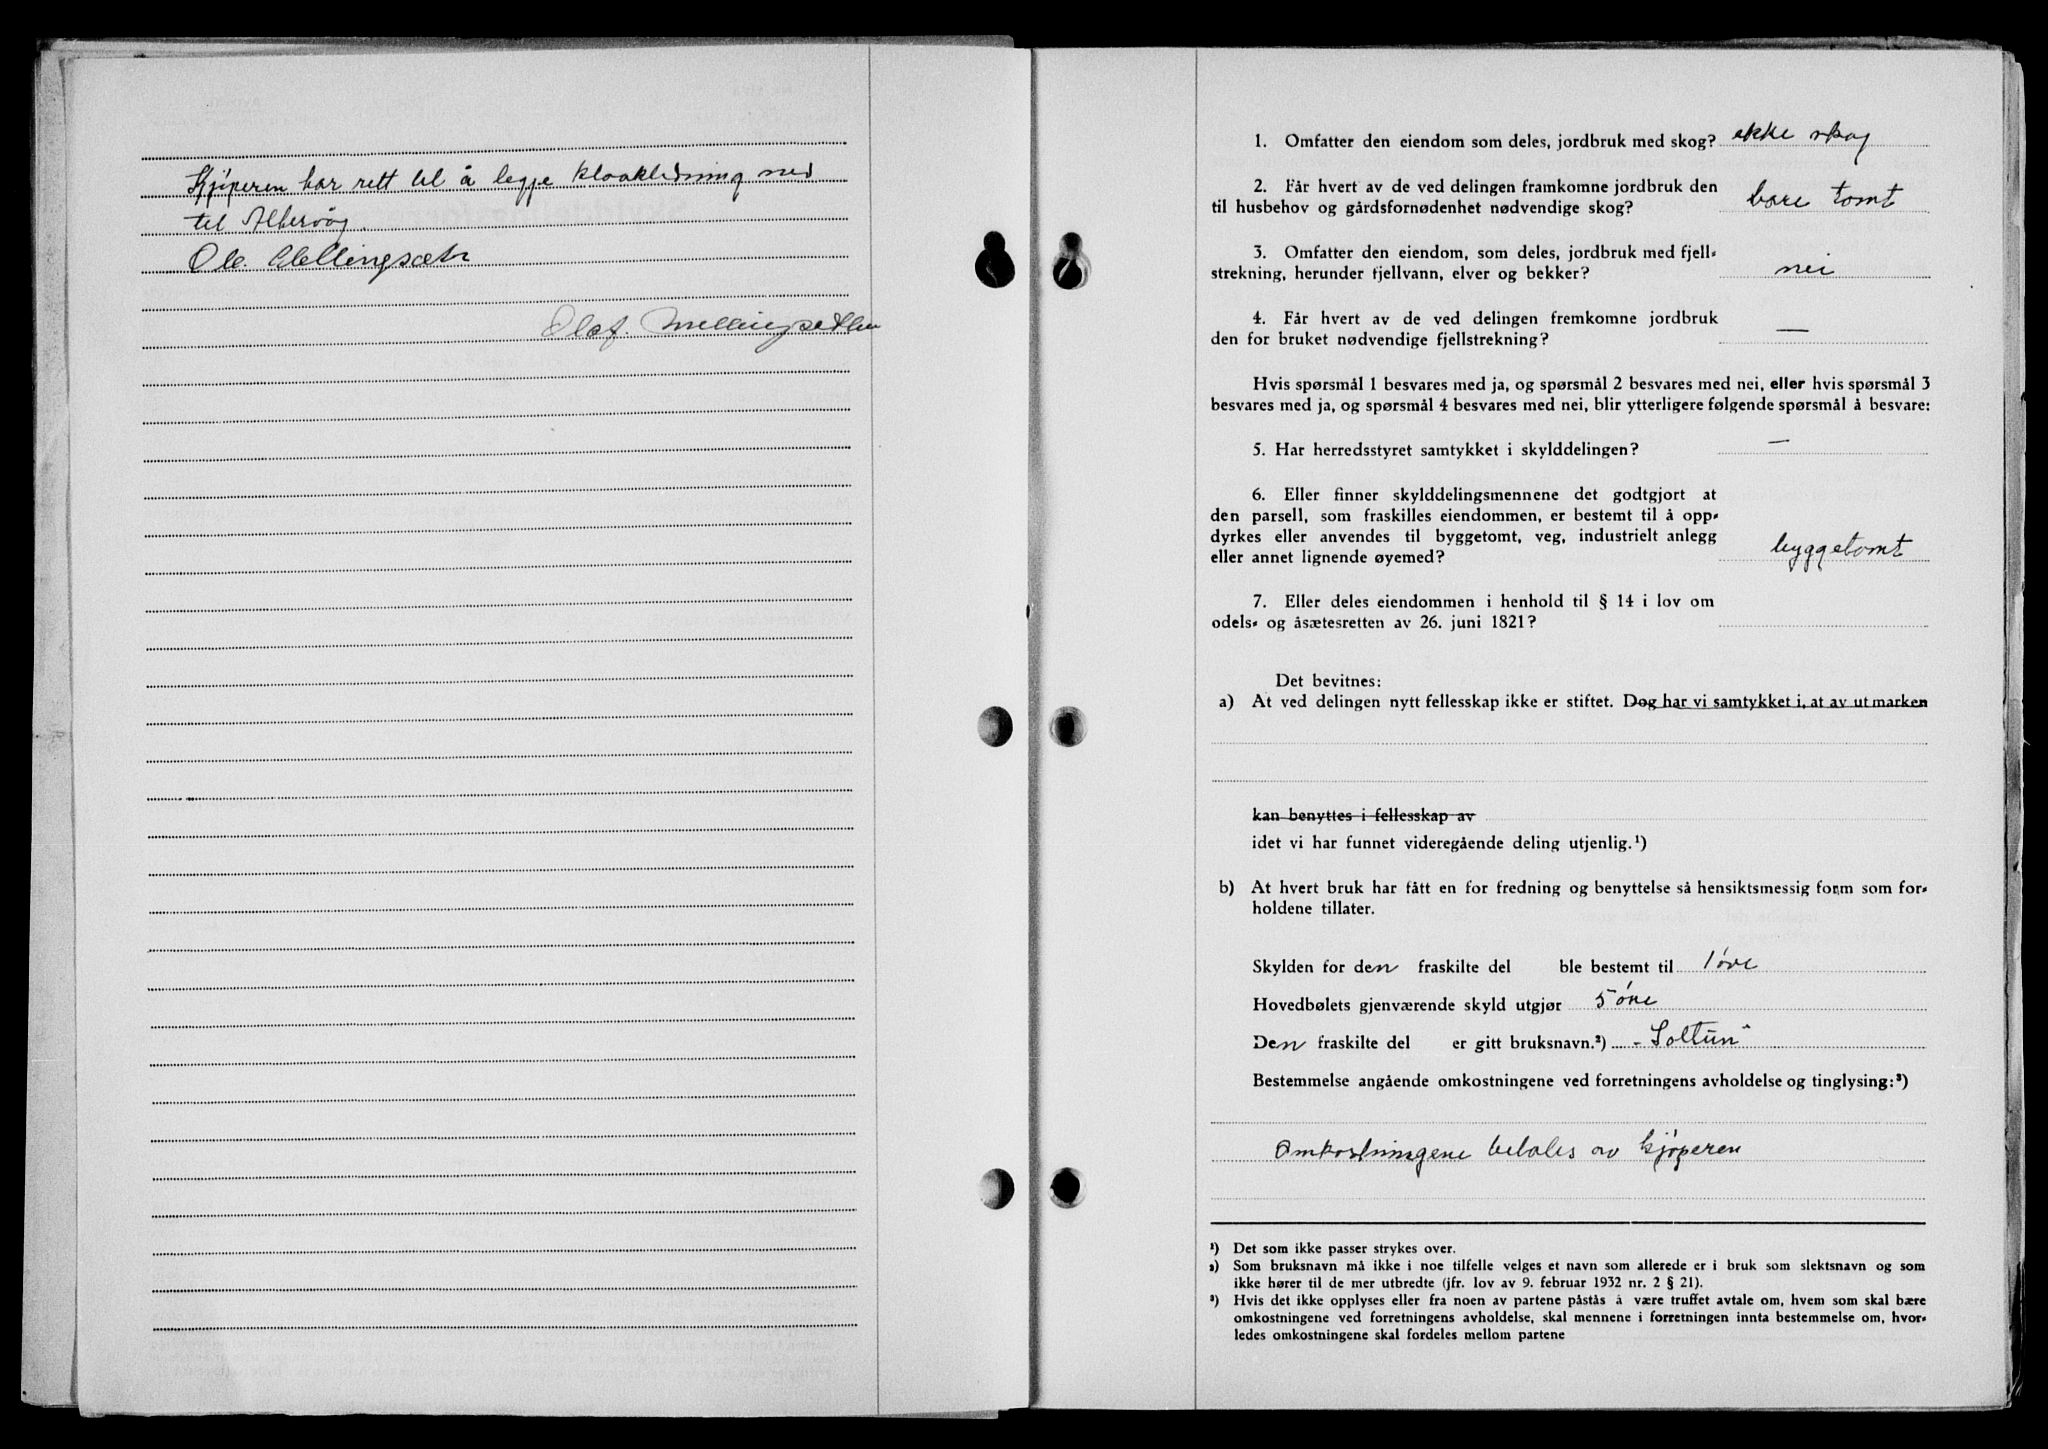 Kjøperen har rett til å legge kloakkledning ned
til
Ole
Olaf
1. Omfatter den eiendom som deles, jordbruk med skog? ikke skog
2. Får hvert av de ved delingen framkomne jordbruk den
til husbehov og gårdsfornødenhet nødvendige skog? bare tomt
3. Omfatter den eiendom, som deles, jordbruk med fjell-
strekning, herunder fjellvann, elver og bekker? nei
4. Får hvert av de ved delingen fremkomne jordbruk
den for bruket nødvendige fjellstrekning? —
Hvis spørsmål 1 besvares med ja, og spørsmål 2 besvares med nei, eller hvis spørsmål 3
besvares med ja, og spørsmål 4 besvares med nei, blir ytterligere følgende spørsmål å besvare:
5. Har herredsstyret samtykket i skylddelingen? —
6. Eller finner skylddelingsmennene det godtgjort at
den parsell, som fraskilles eiendommen, er bestemt til å opp-
dyrkes eller anvendes til byggetomt, veg, industrielt anlegg
eller annet lignende øyemed? byggetomt
7. Eller deles eiendommen i henhold til § 14 i lov om
odels- og åsætesretten av 26. juni 1821?
Det bevitnes:
a) At ved delingen nytt fellesskap ikke er stiftet. Dog har vi samtykket i, at av utmarken
kan benyttes i fellesskap av
idet vi har funnet videregående deling utjenlig.¹)
b) At hvert bruk har fått en for fredning og benyttelse så hensiktsmessig form som for-
holdene tillater.
Skylden for den fraskilte del ble bestemt til 1 øre
Hovedbølets gjenværende skyld utgjør 5 øre
Den fraskilte del er gitt bruksnavn.²) "Soltun"
Bestemmelse angående omkostningene ved forretningens avholdelse og tinglysing:³)
Omkostningene betales av kjøperen
¹) Det som ikke passer strykes over.
²) Som bruksnavn må ikke i noe tilfelle velges et navn som allerede er i bruk som slektsnavn og som
ikke hører til de mer utbredte (jfr. lov av 9. februar 1932 nr. 2 § 21).
³) Hvis det ikke opplyses eller fra noen av partene påstås å være truffet avtale om, hvem som skal bære
omkostningene ved forretningens avholdelse, skal mennene i forretningen innta bestemmelse om, hvor-
ledes omkostningene skal fordeles mellom partene